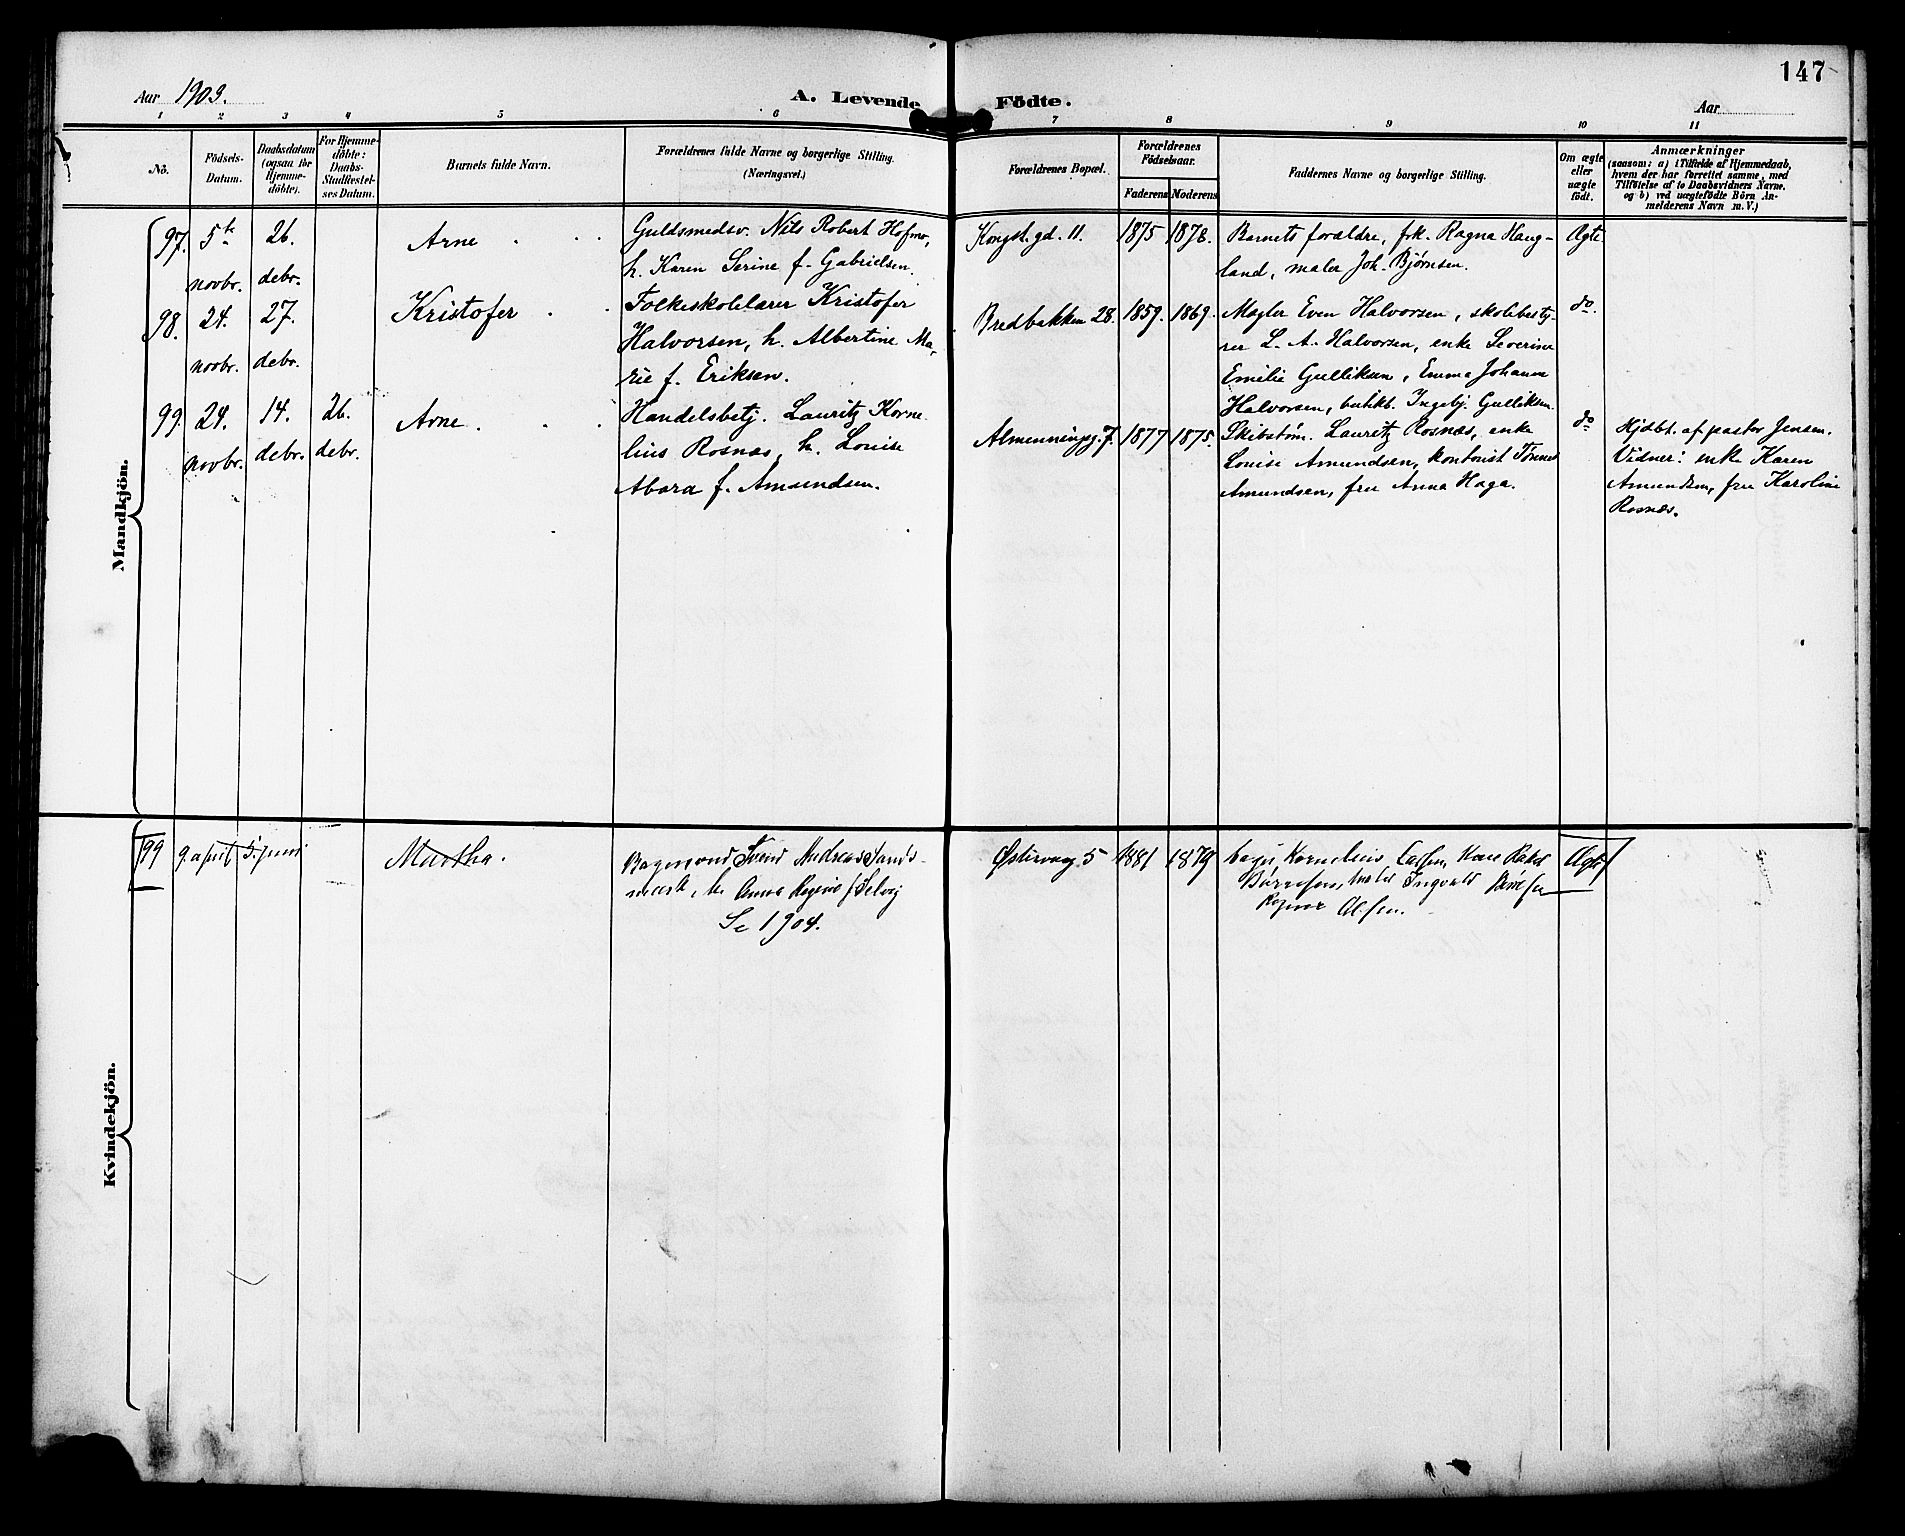 147
Aar 1903.
A. Levende Födte.
Aar
1 2 3 4 5 6 7 8 9 10 11
No.
Födsels-
Datum.
Daabsdatum
(ogsaa for
Hjemme-
döbte).
For Hjemme-
döbte:
Daabs-
Stadfæstel-
ses Datum.
Barnets fulde Navn.
Forældrenes fulde Navne og borgerlige Stilling.
(Næringsvei.)
Forældrenes Bopæl.
Forældrenes
Födselsaar.
Faderens
Moderens
Faddernes Navne og borgerlige Stilling.
Om ægte
eller
uægte
födt.
Anmærkninger
(saasom: a) i Tilfælde af Hjemmedaab,
hvem der har forrettet samme, med
Tilföielse af to Daabsvidners Navne,
og b) ved uægtefödte Börn An-
melderens Navn m. V.)
Mandkjön.
97. 5te novbr. 26. debr.
Arne
Guldsmedsv. Nils Robert Hofmo,
h. Karen Serine f. Gabrielsen.
Kongst. gd. 11. 1875 1878.
Barnets forældre, frk. Ragna Haug-
land, maler Joh. Bjørnsen.
Ægte
98. 24. novbr. 27. debr.
Kristofer
Folkeskolelærer Kristofer
Halvorsen, h. Albertine Ma-
rie f. Eriksen.
Bredbakken 28. 1859. 1869.
Mægler Even Halvorsen, skolebesty-
rer L. A. Halvorsen, enke Severine
Emilie Gulliksen, Emma Johanne
Halvorsen, butikb. Ingebj. Gulliksen.
do.
99. 24. novbr. 14. debr. 26. debr.
Arne
Handelsbetj. Lauritz Korne-
lius Rosnæs, h. Louise
f. Amundsen.
Almenningsg. 7. 1877 1875.
Skibstøm. Lauritz Rosnæs, enke
Louise Amundsen, kontorist Tønnes
Amundsen, fru Anna Haga.
do
Hjdbt. af pastor Jensen.
Vidner: enke Karen
Amundsen, fru Karoline
Rosnæs.
Kvindekjön.
99 9. april 5. juni
Martha.
Bagersvend Svend Andreas Sands-
mark, h. Anna Regine f. Selvig
Se 1904.
Østervaag 5 1881 1879
Kornelius Ingvald
Olsen.
Ægte